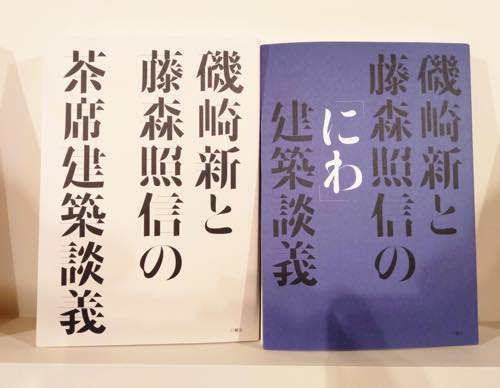 磯崎新と
藤森照信の
茶席建築談義
六耀社
磯崎新と
藤森照信の
「にわ」
建築談義